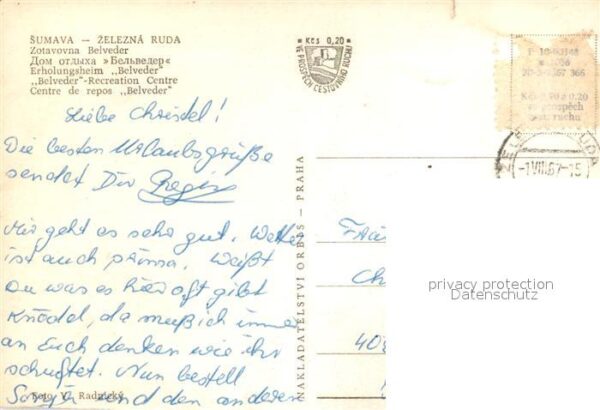 ŠUMAVA — ŽELEZNÁ RUDA
Zotavovna Belveder
Дом отдыха »Бельведер«
Erholungsheim „Belveder"
„Belveder"-Recreation Centre
Centre de repos „Belveder"
Liebe Christel!
Die besten Urlaubsgrüße
sendet Dir
Mir geht es sehr gut. Wetter
ist auch prima. Weißt
Du was es hier oft gibt
Knödel, da muß ich immer
an Euch denken wie ihr
schuftet. Nun bestell
und den anderen
Foto V. Radnický
NAKLADATELSTVÍ ORBIS — PRAHA
Kčs 0,20
VE PROSPĚCH CESTOVNÍHO RUCHU
Kčs 0.20
ve prospěch
ruchu
RUDA
-1.VIII.67-15
Ch
408
privacy protection
Datenschutz